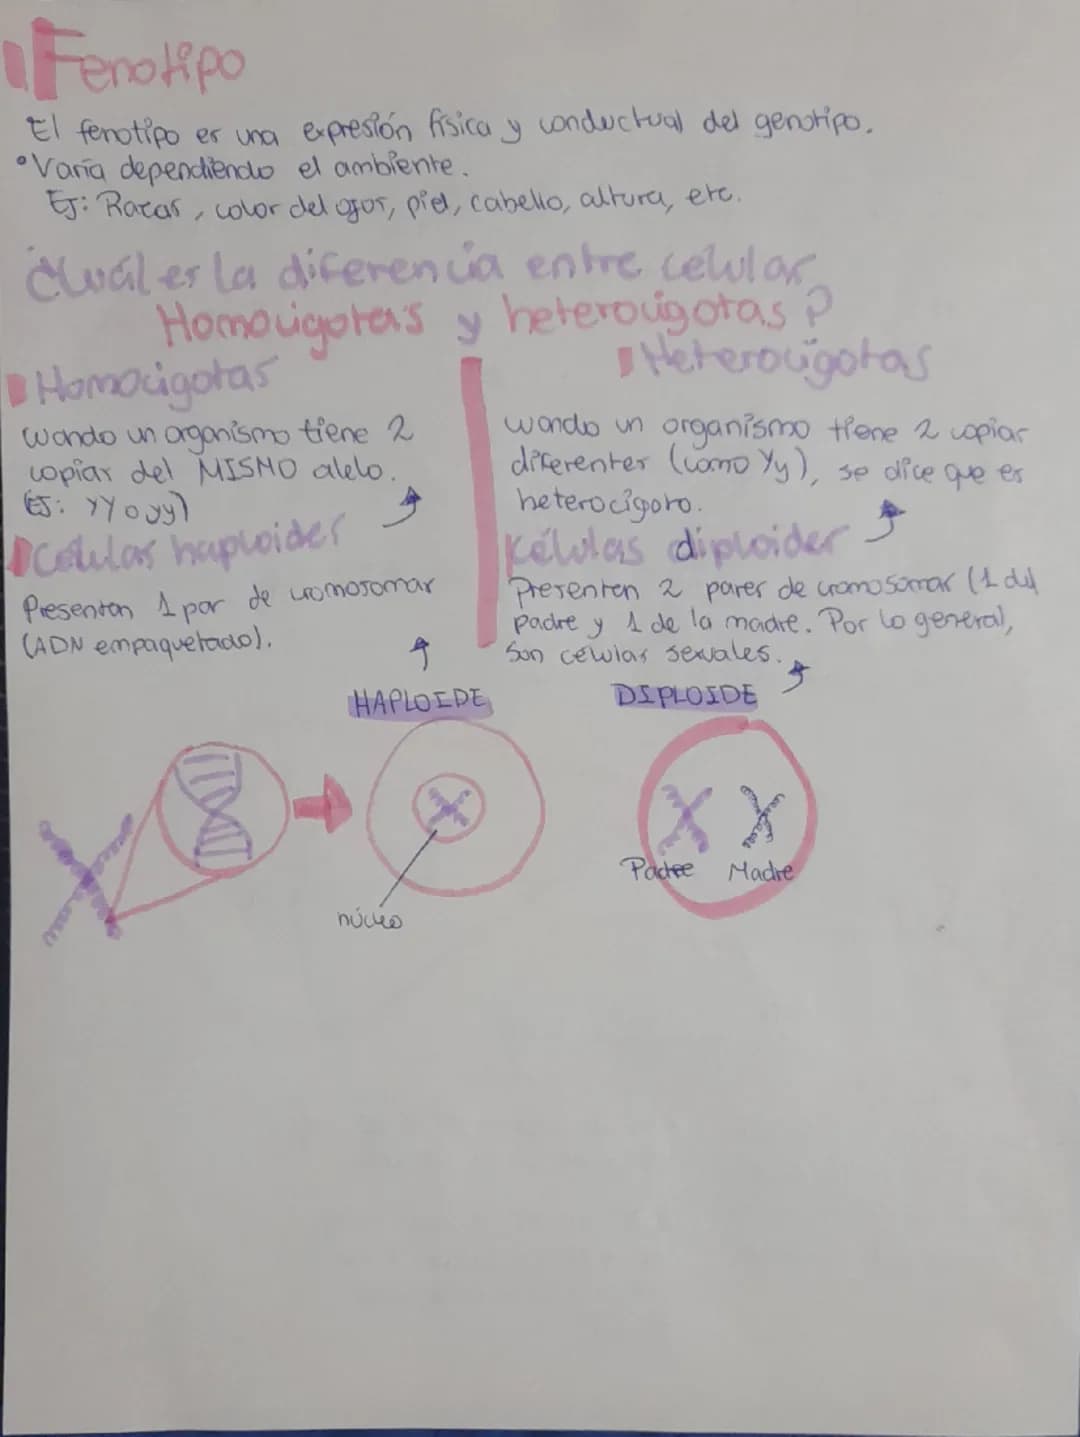 Fenotipo
El fenotipo es una expresión física y conductual del genotipo.
• Varia dependiendo el ambiente.
Ej: Razas, color del ojos, piel, cabello, altura, etc.
¿Cuál es la diferencia entre celulas
Homocigotas y heterocigotas?
Homocigotas
Cuando un organismo tiene 2
copias del MISMO alelo.
(EJ: YY o yy)
Células haploides
Presentan 1 par de cromosomas
(ADN empaquetado).
Heterocigotas
Cuando un organismo tiene 2 copias
diferentes (como Yy), se dice que es
heterocigoto.
Células diploides
Presentan 2 pares de cromosomas (1 del
padre y 1 de la madre. Por lo general,
Son celulas sexuales.
HAPLOIDE
DIPLOIDE
Padre Madre
núcleo